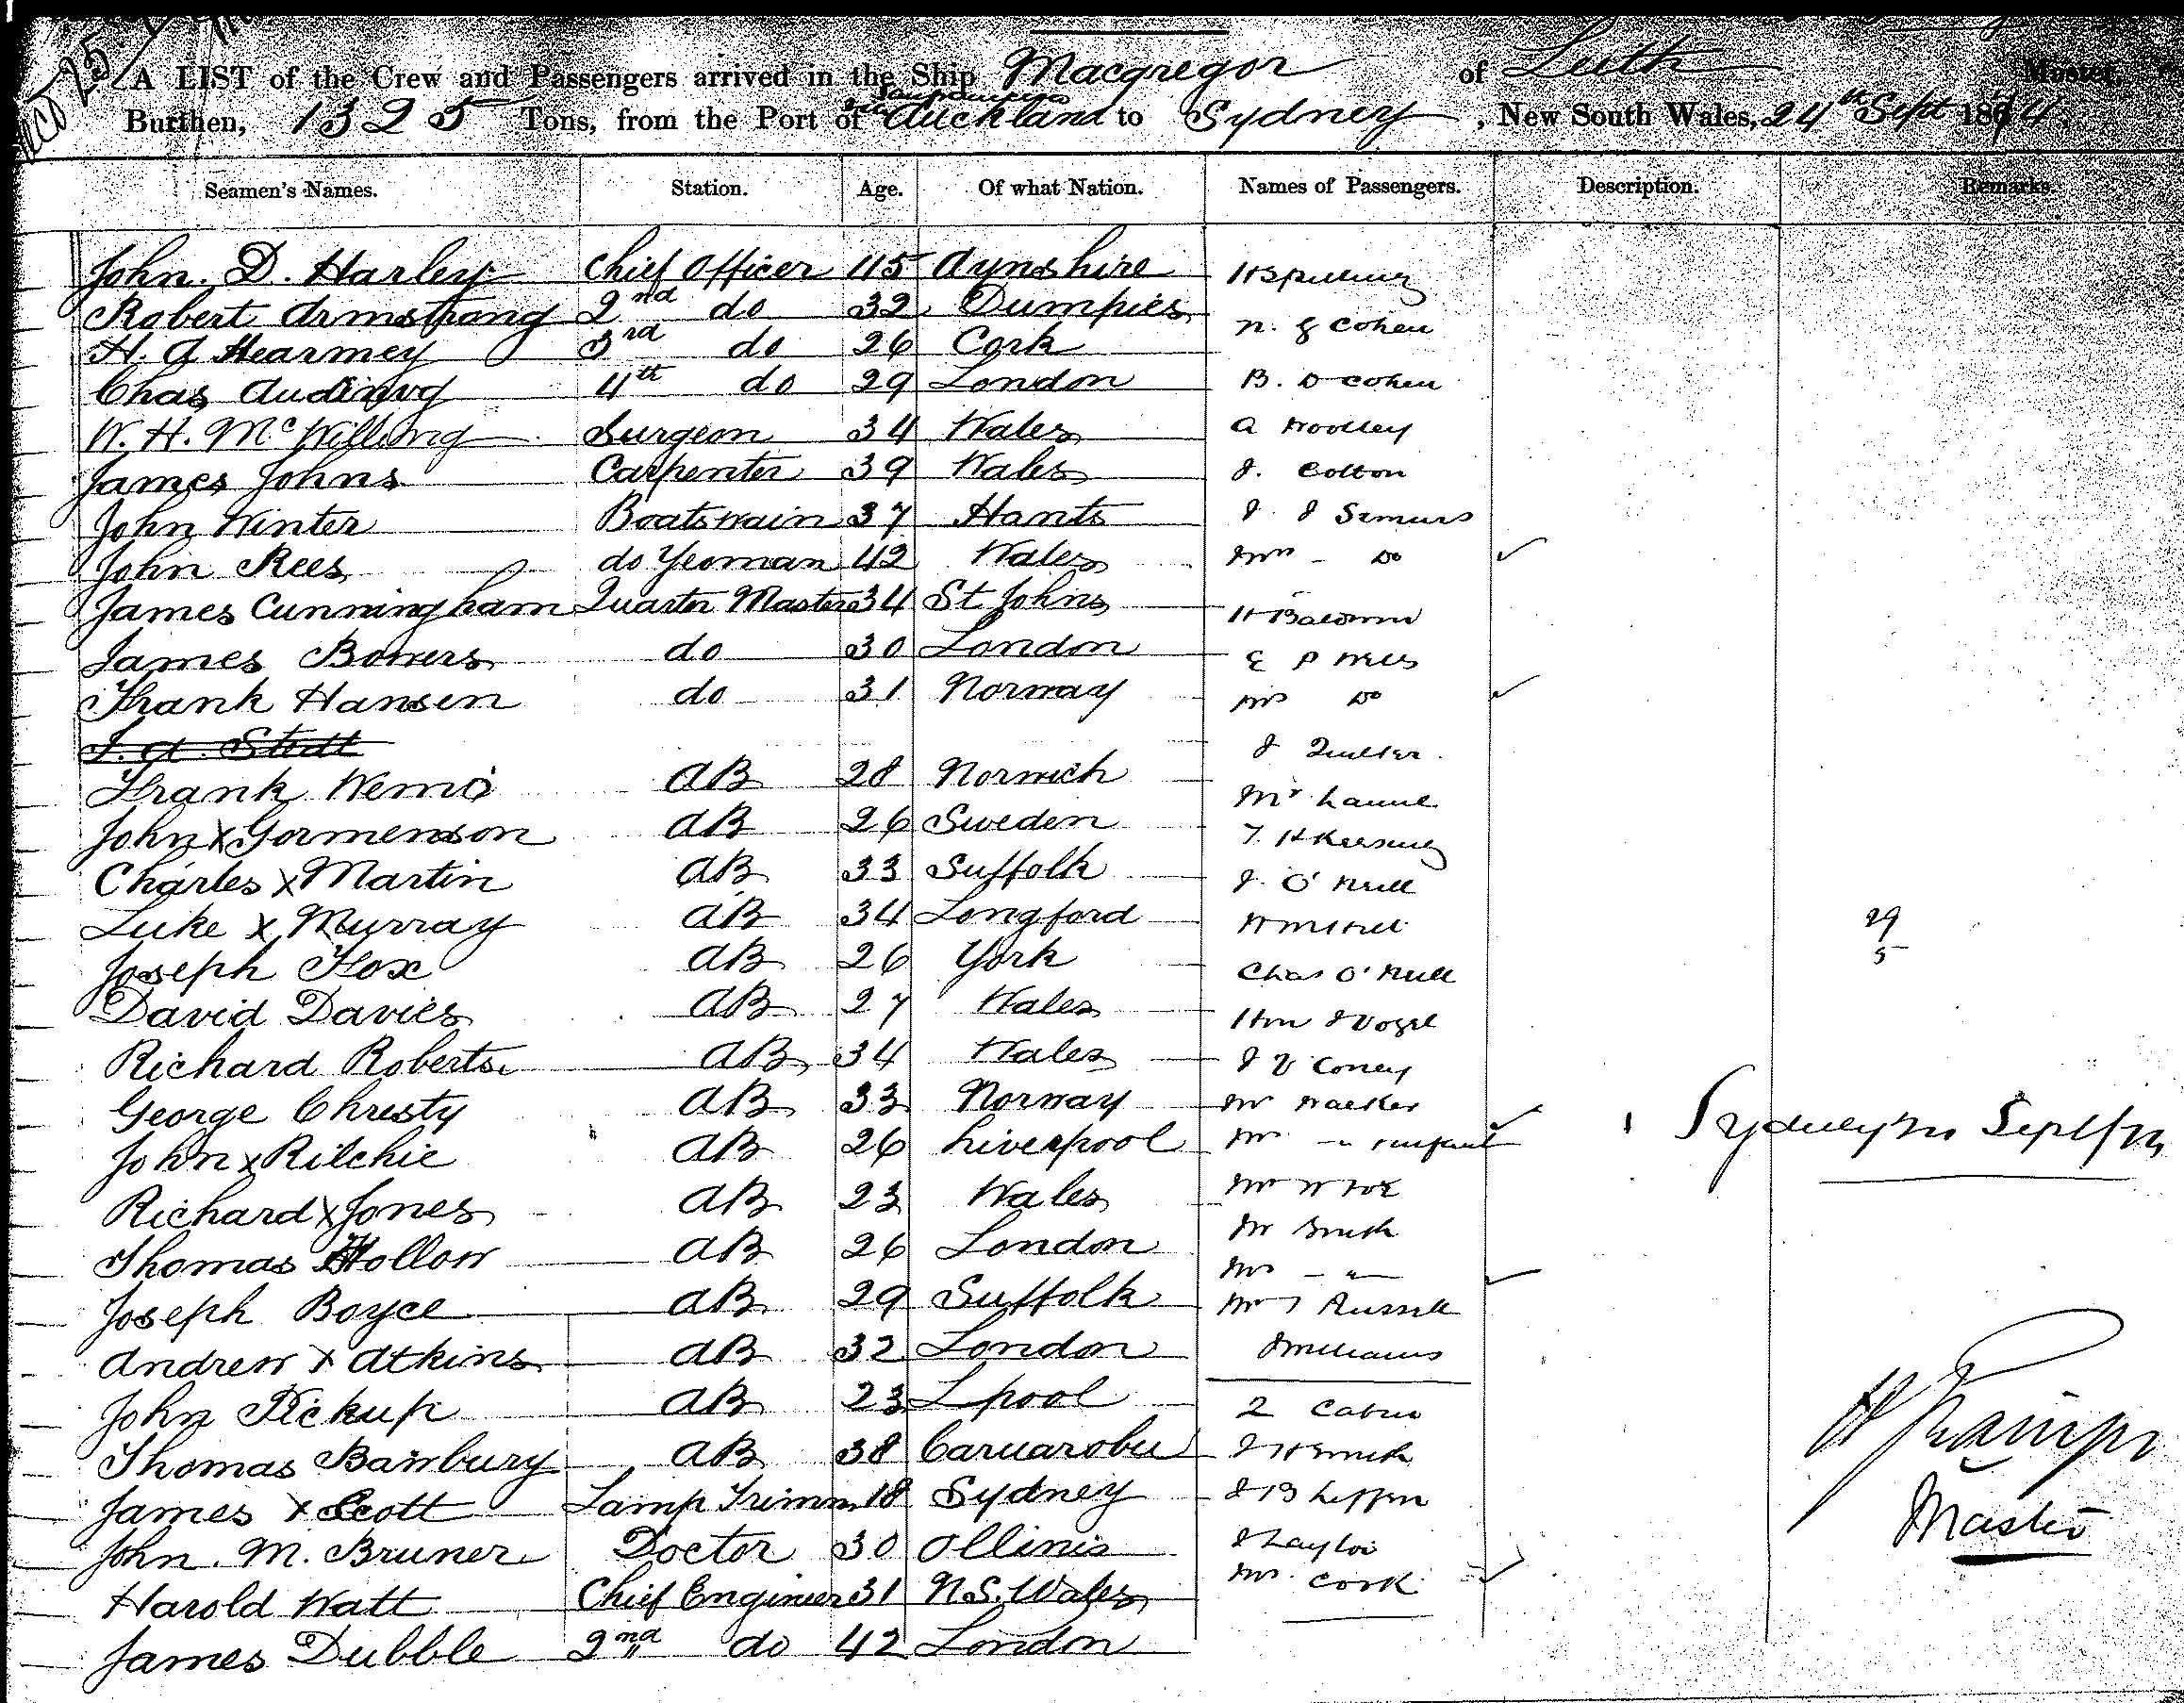 A LIST of the Crew and Passengers arrived in the Ship Macgregor of Leith Master,
Burthen, 1325 Tons, from the Port of Auckland to Sydney, New South Wales, 24th Sept 1874
Seamen's Names. Station. Age. Of what Nation. Names of Passengers. Description. Remarks.
John. D. Harley Chief Officer 45 Ayrshire
Robert Armstrong 2nd do 32 Dumpies N. G Cohen
H. A Hearmey 3rd do 26 Cork
Chas 4th do 29 London B. D Cohen
W. H. Mc Surgeon 34 Wales A Woolley
James Johns Carpenter 39 Wales J. Colton
John Winter Boatswain 37 Hants J. J
John Rees do Yeoman 42 Wales Mrs - Do
James Cunningham Quarter Master 34 St Johns H Baldwin
James Bowers do 30 London E P
Frank Hansen do 31 Norway Mrs Do
J. A. Stedt J
Frank Nemo AB 28 Norwich Mr
John X Gormenson AB 26 Sweden T. H
Charles X Martin AB 33 Suffolk J. O'Neill
Luke X Murray AB 34 Longford 29
Joseph Fox AB 26 York Chas O'Neill 5
David Davies AB 27 Wales Hon J Vogel
Richard Roberts AB 34 Wales J V Coney
George Christy AB 33 Norway Mr Walker
John X Ritchie AB 26 Liverpool Mrs - " infant Sydney
Richard X Jones AB 23 Wales Mr W Fox
Thomas Hollow AB 26 London Mr Smith
Joseph Boyce AB 29 Suffolk Mrs - "
Mr T Russell
Andrew X Atkins AB 32 London J Williams
John Pickup AB 23 Lpool 2 Cabin
Thomas Bambury AB 38 J H Smith
James X Scott Lamp Trimm 18 Sydney J B
John. M. Bruner Doctor 30 Ollinis J Taylor Master
Harold Watt Chief Engineer 31 N.S. Wales Mrs. Cork
James Dubble 2nd do 42 London